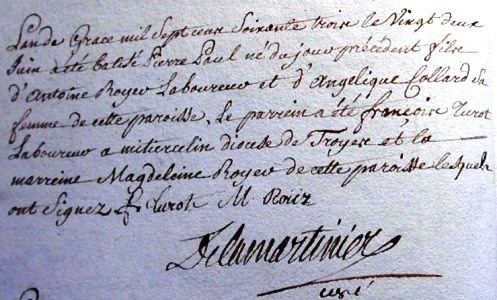 L'an de Grace mil sept cens soixante trois le Vingt deux
Juin a été batisé Pierre Paul né du jour précédent fils
d'Antoine Royer Laboureur et d'Angelique Collard sa
femme de cette paroisse, Le parrein a été françois Turot
Laboureur a metiercelin diocese de Troyes et la
marreine Magdeleine Royer de cette paroisse lesquels
ont Signez F Turot M Roiez
Delamartiniere
curé